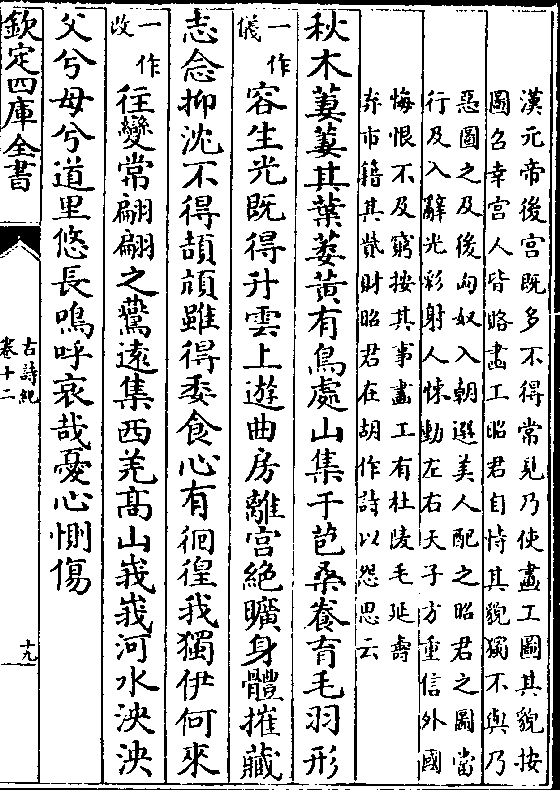 漢元帝後宮既多不得常見乃使畫工圖其貌按
圖召幸宮人皆賂畫工昭君自恃其貌獨不與乃
惡圖之及後匈奴入朝選美人配之昭君之圖當
行及入辭光彩射人悚動左右天子方重信外國
悔恨不及窮按其事畫工有杜陵毛延壽
弃市籍其貲財昭君在胡作詩以怨思云
秋木萋萋其葉萎黃有鳥處山集于苞桑養育毛羽形
一作儀容生光既得升雲上遊曲房離宮絕曠身體摧藏
志念抑沈不得頡頏雖得委食心有徊徨我獨伊何來
一作改往變常翩翩之鷰遠集西羌高山峩峩河水泱泱
父兮母兮道里悠長嗚呼哀哉憂心惻傷
欽定四庫全書
古詩紀
卷十二
十九